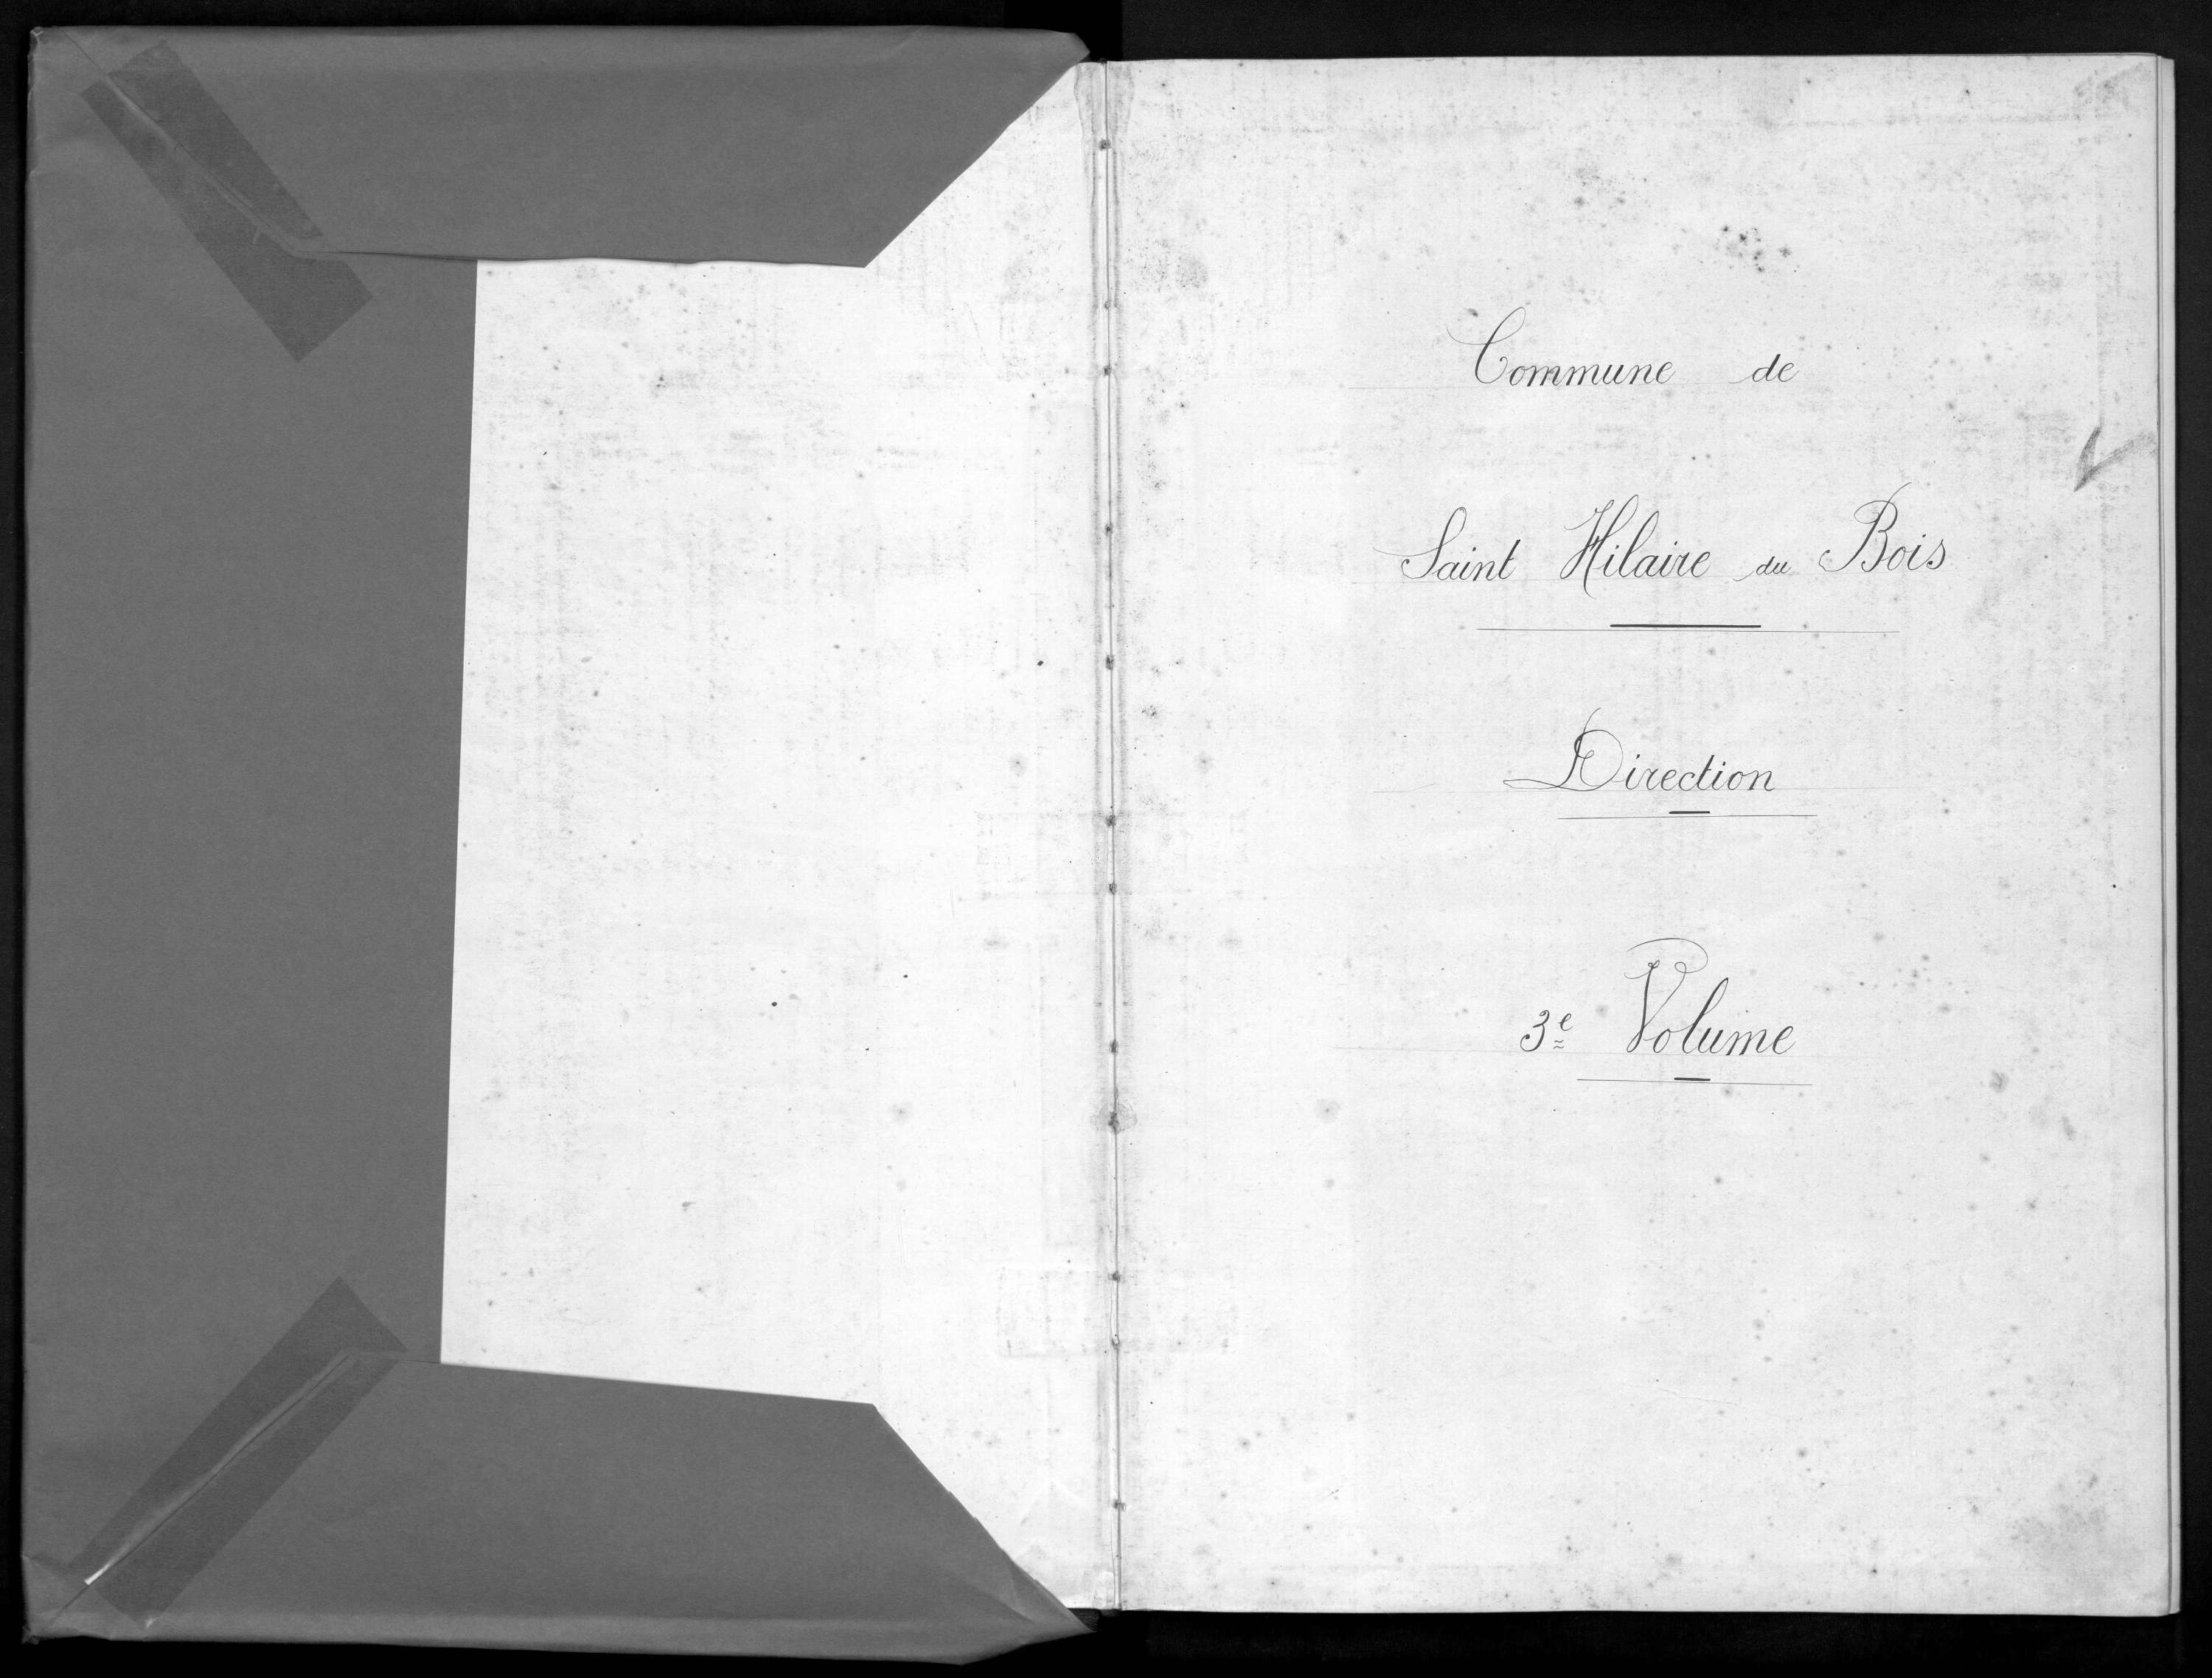 Commune de
Saint Hilaire du Bois
Direction
3e Volume